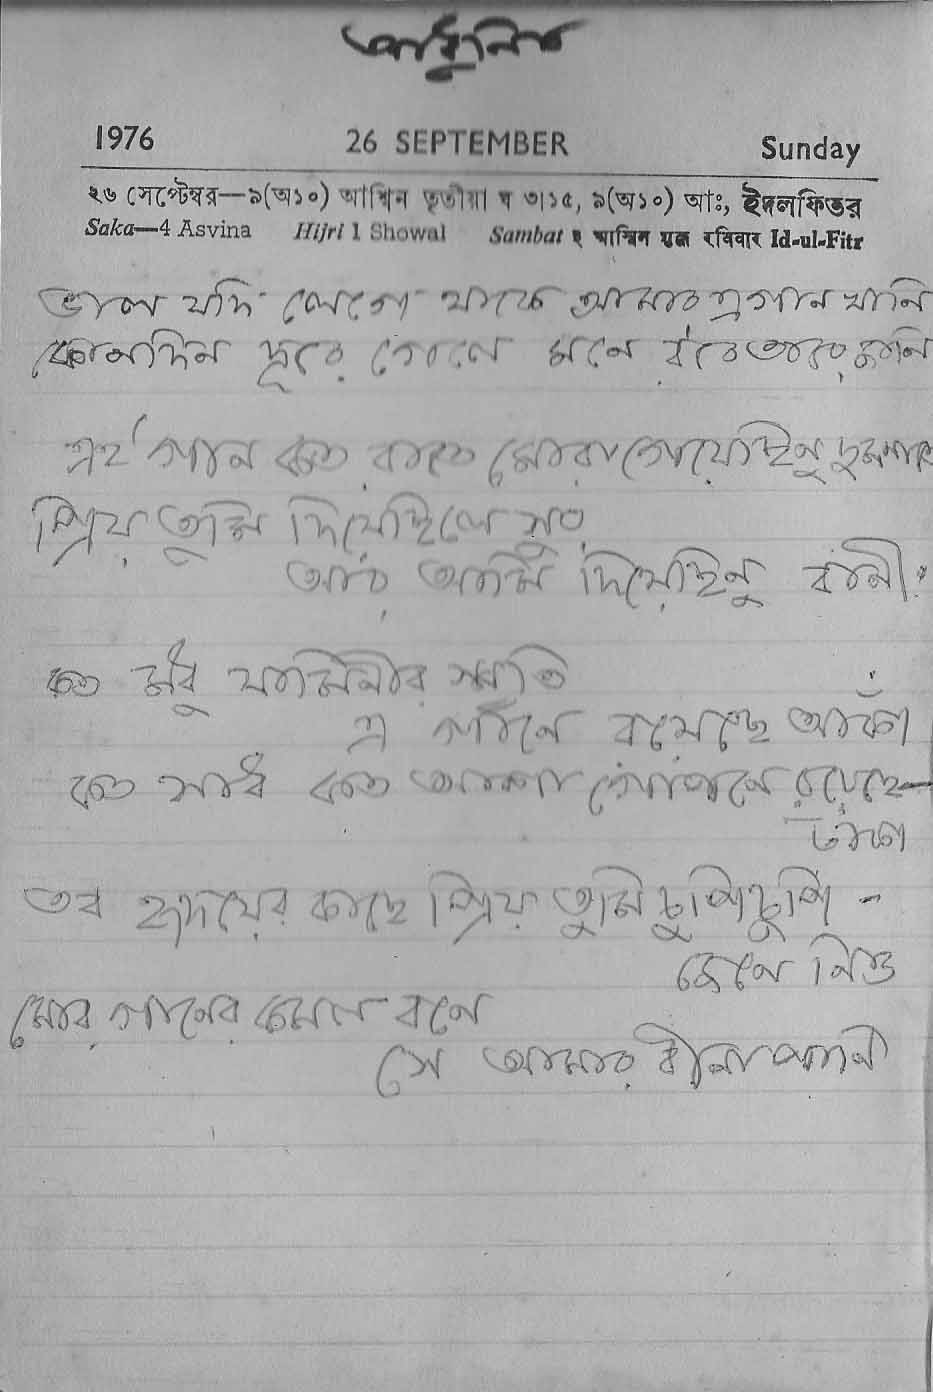 আধুনিক
1976 26 SEPTEMBER Sunday
২৬ সেপ্টেম্বর—৯(অ১০) আশ্বিন তৃতীয়া ঘ ৩।১৫, ৯(অ১০) আঃ, ইদলফিতর
Saka—4 Asvina Hijri 1 Showal Sambat २ आश्विन शुक्ल रविवार Id-ul-Fitr
ভাল যদি লেগে থাকে আমার এ গান খানি
কোনদিন দূরে গেলে মনে রবে তাহা জানি
এই গান কত রাতে মোরা গেয়েছিনু দুজনাতে
প্রিয় তুমি দিয়েছিলে সুর
আর আমি দিয়েছিনু বানী।
কত মধু যামিনীর স্মৃতি
এ গানে রয়েছে আঁকা
কত সাধ কত আশা গোপনে রয়েছে—
ঢাকা
তব হৃদয়ের কাছে প্রিয় তুমি চুপি চুপি -
জেনে নিও
মোর গানের কমল বনে
সে আমার বীনাপানী